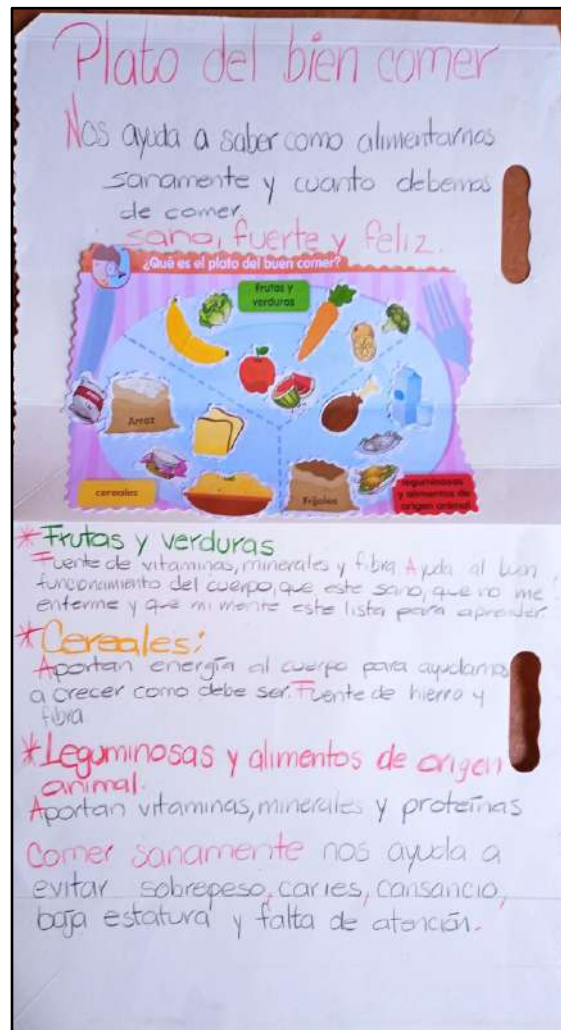 Plato del bien comer
Nos ayuda a saber como alimentarnos
sanamente y cuanto debemos
de comer
sano, fuerte y feliz.
¿Qué es el plato del buen comer?
frutas y
verduras
Arroz
cereales
Frijoles
leguminosas
y alimentos de
origen animal
*Frutas y verduras
Fuente de vitaminas, minerales y fibra. Ayuda al buen
funcionamiento del cuerpo, que este sano, que no me
enferme y que mi mente este lista para aprender.
*Cereales:
Aportan energía al cuerpo para ayudarnos
a crecer como debe ser. Fuente de hierro y
fibra
*Leguminosas y alimentos de origen
animal.
Aportan vitaminas, minerales y proteínas
Comer sanamente nos ayuda a
evitar sobrepeso, caries, cansancio,
baja estatura y falta de atención.